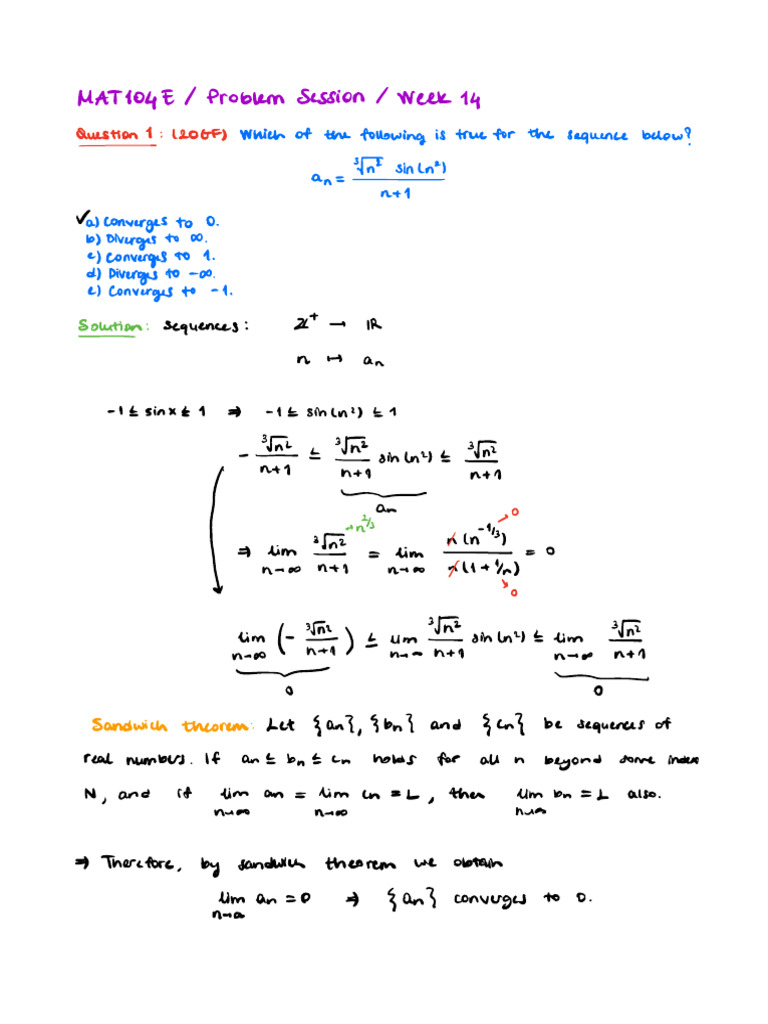 MAT104E / Problem Session / Week 14
Question 1: (20GF) Which of the following is true for the sequence below?
aₙ = ∛n² sin(n²) / n+1
✓a) Converges to 0.
b) Diverges to ∞.
c) Converges to 1.
d) Diverges to -∞.
e) Converges to -1.
Solution: Sequences: ℤ⁺ → ℝ
n ↦ aₙ
-1 ≤ sinx ≤ 1 ⇒ -1 ≤ sin(n²) ≤ 1
- ∛n² / n+1 ≤ ∛n² / n+1 sin(n²) ≤ ∛n² / n+1
aₙ
→n^2/3
→0
⇒ lim n→∞ ∛n² / n+1 = lim n→∞ n(n^-1/3) / n(1 + 1/n) = 0
→0
lim n→∞ (- ∛n² / n+1) ≤ lim n→∞ ∛n² / n+1 sin(n²) ≤ lim n→∞ ∛n² / n+1
0 0
Sandwich theorem: Let {an}, {bn} and {cn} be sequences of
real numbers. If an ≤ bn ≤ cn holds for all n beyond some index
N, and if lim n→∞ an = lim n→∞ cn = L, then lim n→∞ bn = L also.
⇒ Therefore, by sandwich theorem we obtain
lim n→∞ an = 0 ⇒ {an} converges to 0.